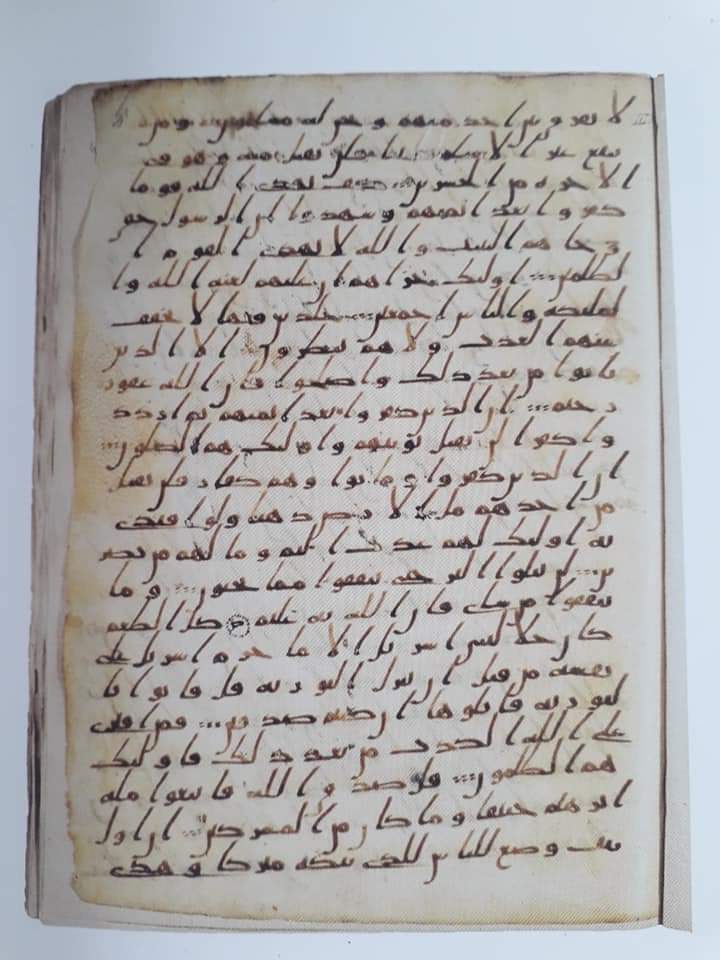 لا نفرق بين احد منهم و نحن له مسلمون و من
يبتغ غير الاسلم دينا فلن يقبل منه و هو في
الاخرة من الخسرين كيف يهدي الله قوما
كفروا بعد ايمنهم و شهدوا ان الرسول حق
و جاهم البينت و الله لا يهدي القوم ا
لظلمين اوليك جزاهم ان عليهم لعنة الله وا
لمليكة والناس اجمعين خلدين فيها لا يخفف
عنهم العذب و لا هم ينظرون الا الذين
تابوا من بعد ذلك و اصلحوا فان الله غفور
رحيم ان الذين كفروا بعد ايمنهم ثم ازدد
وا كفرا لن تقبل توبتهم و اوليك هم الضلون
ان الذين كفروا و ماتوا و هم كفار فلن يقبل
من احدهم مل الارض ذهبا ولو افتدى
به اوليك لهم عذب اليم و ما لهم من نصر
ين لن تنلوا البر حتى تنفقوا مما تحبون و ما
تنفقوا من شي فان الله به عليم كل الطعم
كان حلا لبني اسريل الا ما حرم اسريل على
نفسه من قبل ان تنزل التورية قل فاتوا با
لتورية فاتلوها ان كنتم صدقين فمن افترى
على الله الكذب من بعد ذلك فاوليك
هم الظلمون قل صدق الله فاتبعوا ملة
ابرهيم حنيفا و ما كان من المشركين ان اول
بيت وضع للناس للذي ببكة مبركا و هدى